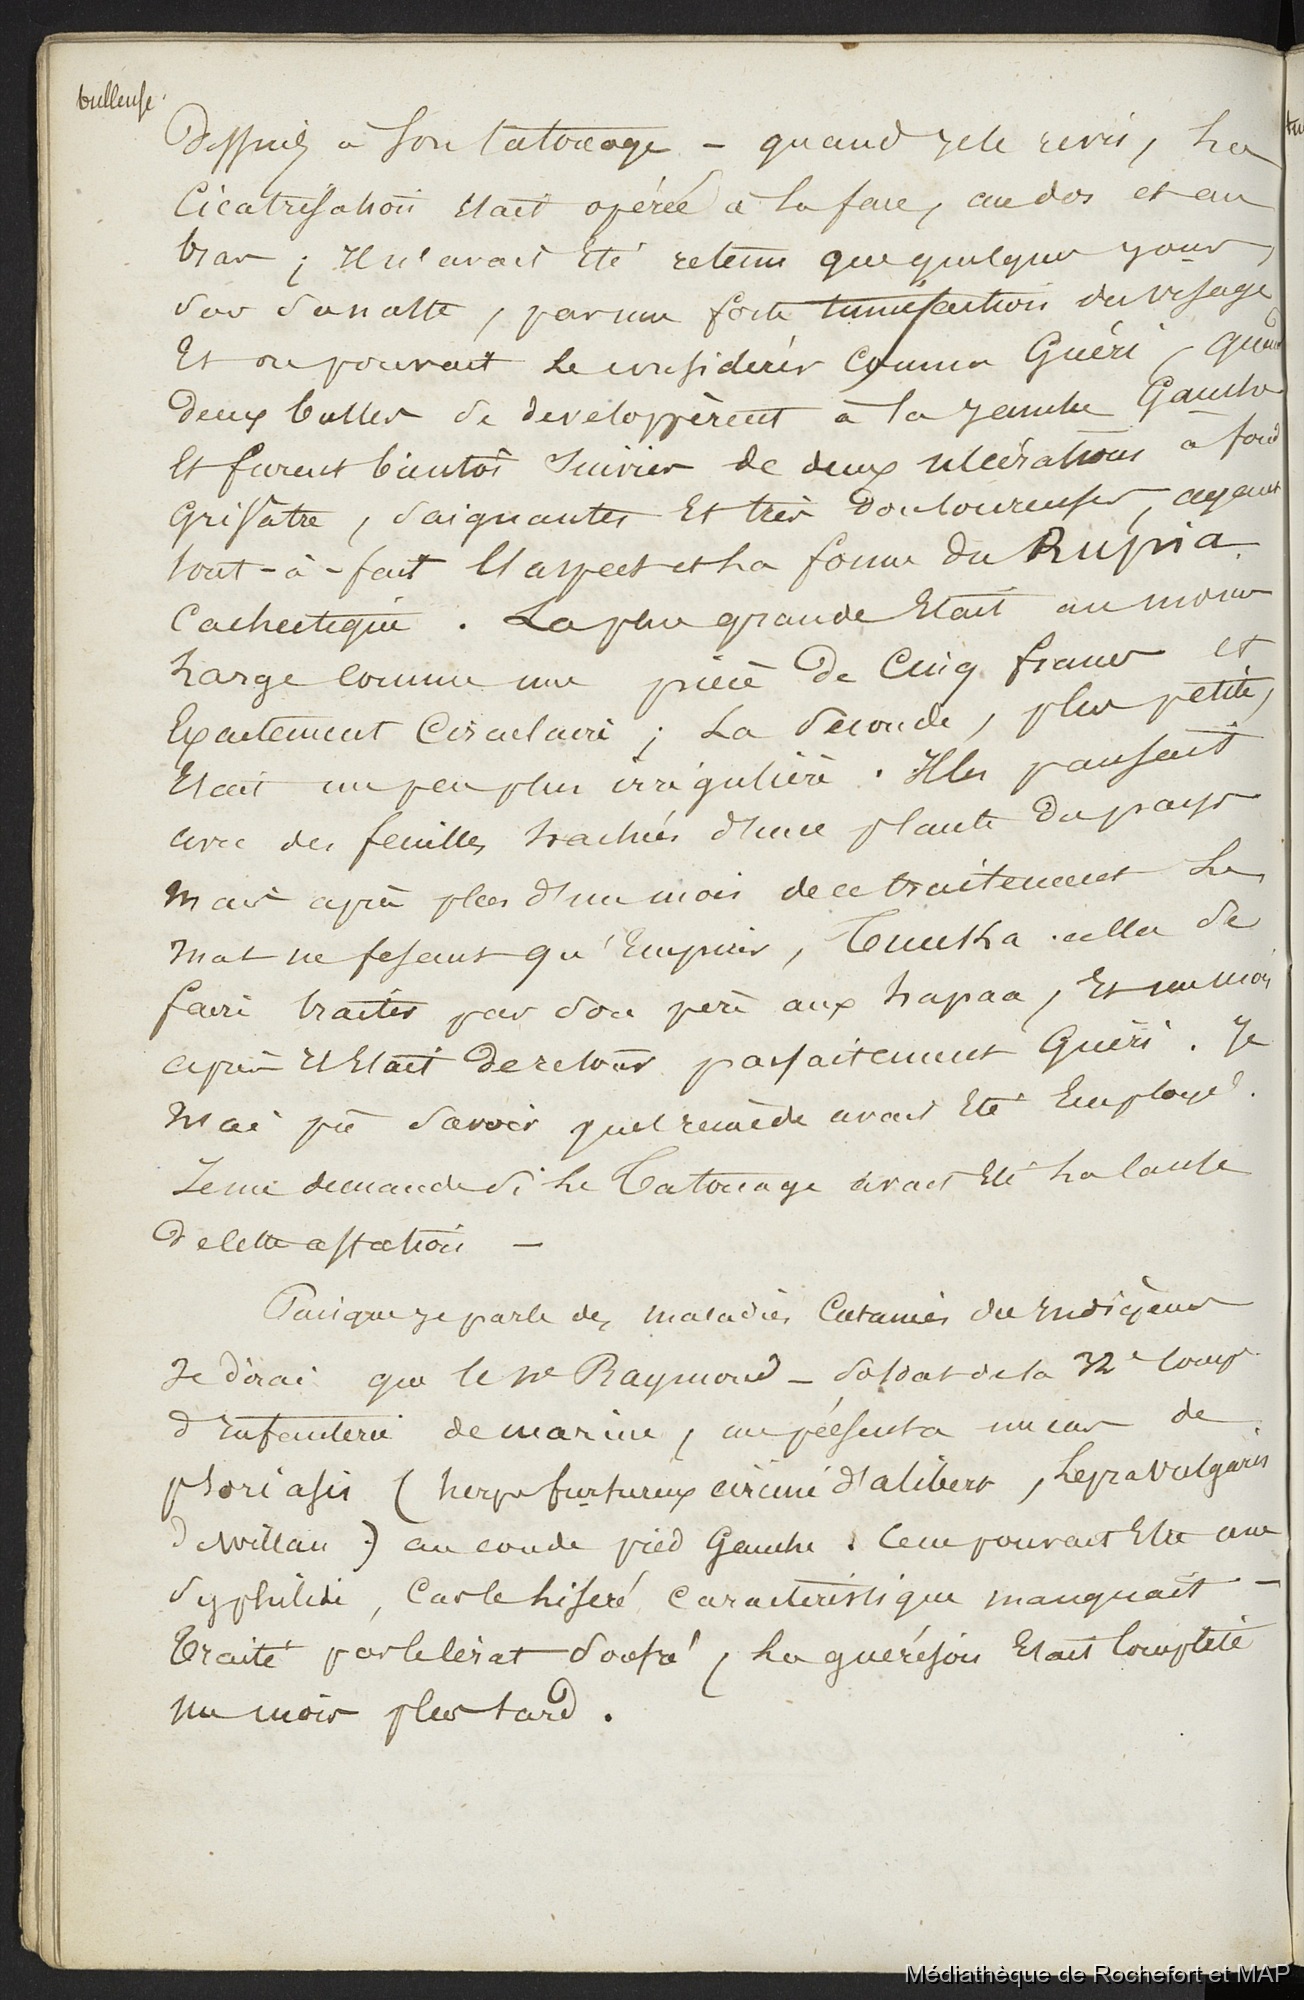 bulleuse.
Dessinés à Son tatouage – quand Je le revis, La
Cicatrisation était opérée à La face, au dos et au
bras ; Il n'avait été retenu que quelques jours,
Sur Sa natte, par une forte tuméfaction du visage,
Et on pouvait Le considérer Comme Guéri, quand
Deux bulles Se développèrent à La Jambe Gauche
Et furent bientôt Suivies de deux ulcérations à fond
Grisâtre, Saignantes Et très Douloureuses, ayant
tout-à-fait l'aspect et La forme du Rupia
Cachectique. La plus grande Etait au moins
Large comme une pièce De Cinq francs et
Exactement Circulaire ; La Seconde, plus petite,
Etait un peu plus irrégulière. Il les pansait
avec des feuilles hachées d'une plante Du pays
Mais après plus d'un mois de ce traitement Le
Mal ne fesant qu'Empirer, Tueeka alla Se
faire traiter par Son père aux hapaa, Et un mois
après Il Etait De retour parfaitement Guéri. Je
N'ai pû Savoir quel remède avait Eté Employé.
Je me demande Si Le Tatouage avait Eté La Cause
De cette affection –
Puisque je parle des maladies Cutanées des Indigènes
Je dirai que le né Raymond – Soldat de la 32e Comp
D'Infanterie de marine, me présenta un cas de
psoriasis (herpes furfureux circiné d'alibert, Lepra vulgaris
De Willan) au cou de pied Gauche. Ce ne pouvait Etre une
Syphilide, Car le liseré caractéristique manquait –
Traité par le Cérat Soufré, La guérison Etait Complète
un mois plus tard.
Médiathèque de Rochefort et MAP